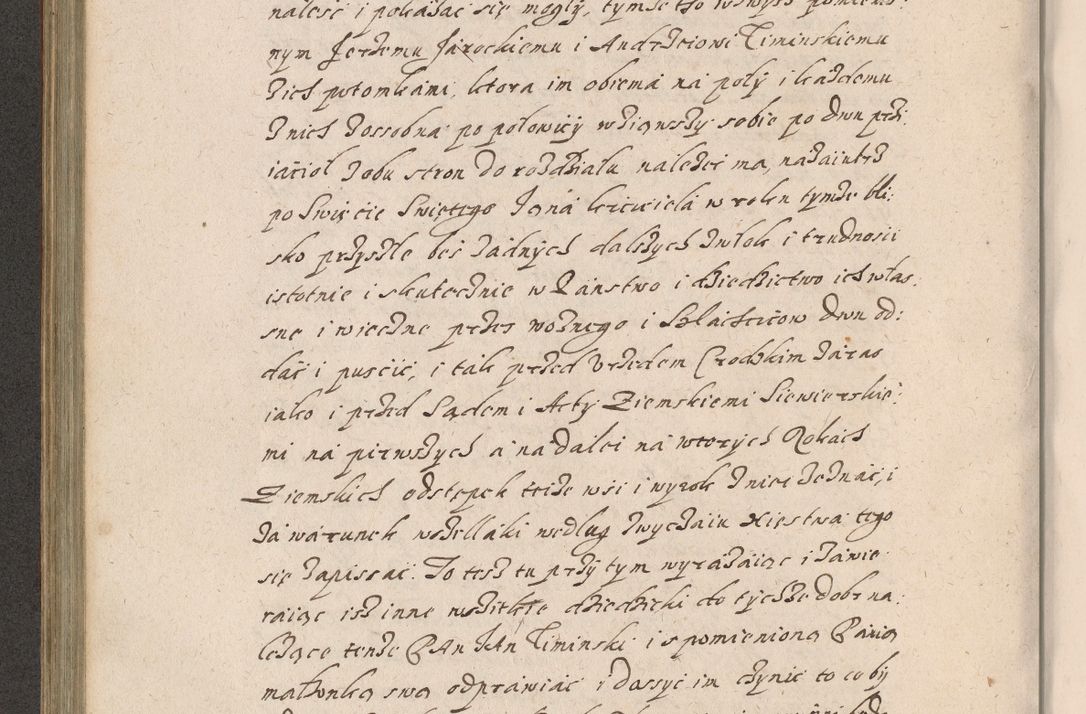 należeć i pokazać się mogły, tymże tho wswysz pomienio:
nym Jerzemu Jarockiemu i Andrzeiowi Timinskiemu
zich potomkami, ktora im obiema na poły i każdemu
znich zossobna po połowicy wziąwszy sobie po dwu przi:
iaciół zobu stron do rozdziału należeć ma, nazaiutrz
po Swięcie Swiętego Jana krzciciela w roku tymże bli:
sko przyszłe bes żadnych dalszych zwłok i trudnosci
istotnie i skutecznie w Państwo i dziedzictwo ich włas:
sne i wieczne przes woznego i Szlachcicow dwu od:
dać i puscić, i tak przed Urzedem Grodzkim zaras
iako i przed Sądem i Acty Ziemskiemi Siewierskie:
mi na pierwszych a nadaley na wtorych Rokach
Ziemskich odstępek teize wsi i wyrok zniei zeznać, i
za warunek wszellaki według zwyczaiu Xiestwa tego
się zapissać. To tesz tu przy tym wyrażaiąc i zawie:
raiąc isz inne wszitkie dziedzicki do tychże dobr na:
leżące tenże PAn JAn Timinski i s pomienioną Panią
małżonką swą odprawiać i dossyć im czynić to co by